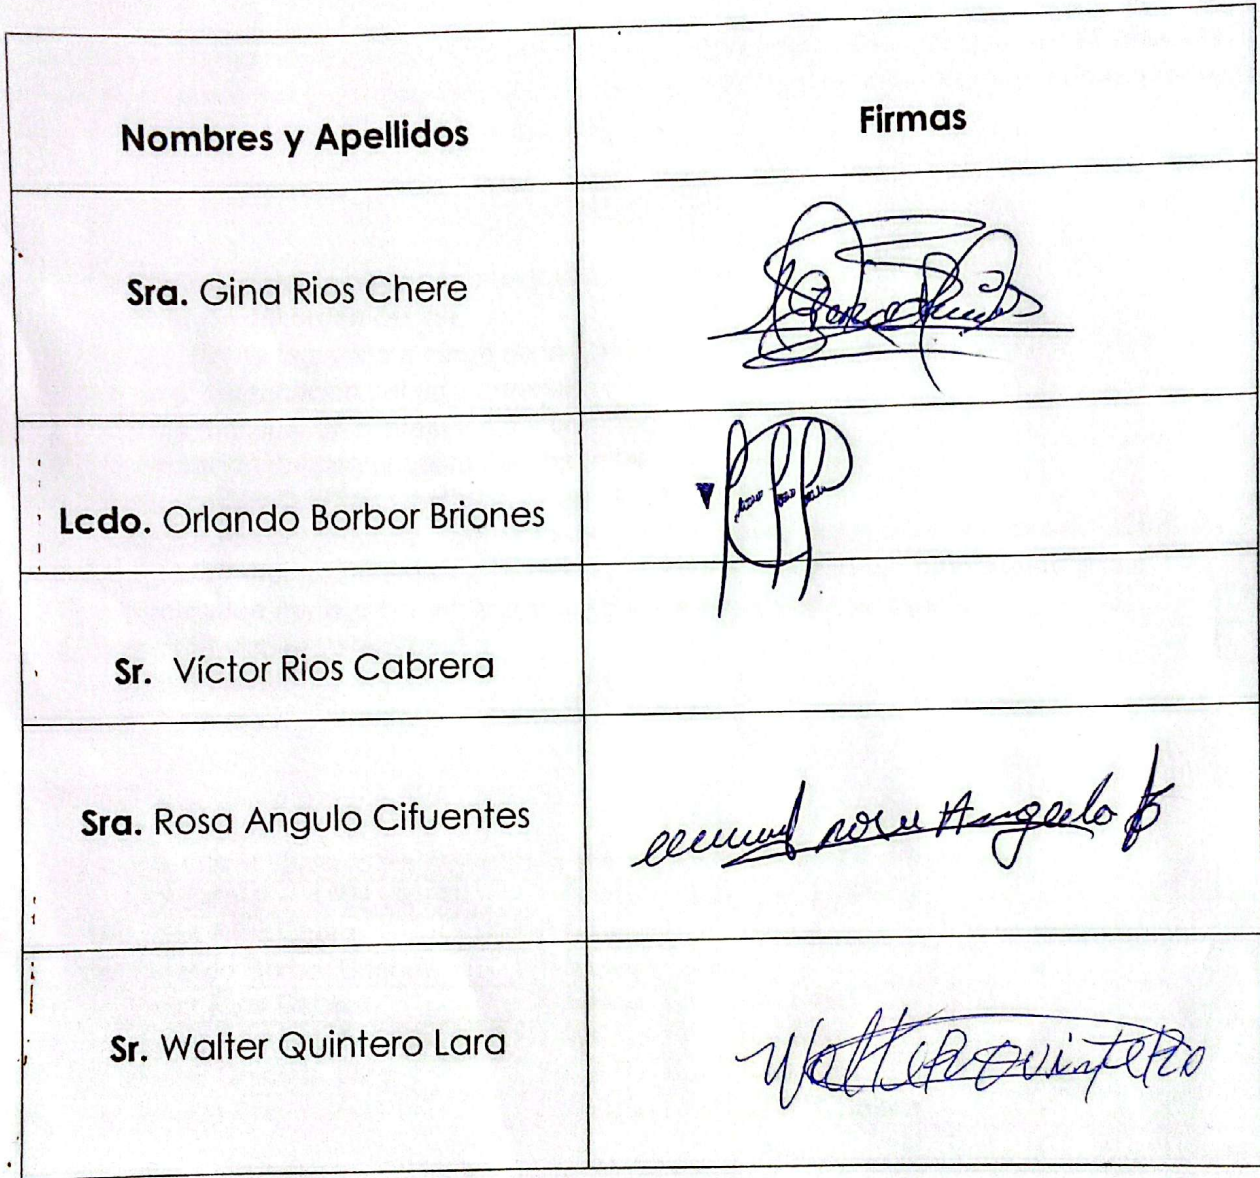 Nombres y Apellidos
Firmas
Sra. Gina Rios Chere
Lcdo. Orlando Borbor Briones
Sr. Víctor Rios Cabrera
Sra. Rosa Angulo Cifuentes
rosa Angulo
Sr. Walter Quintero Lara
Walter Quintero